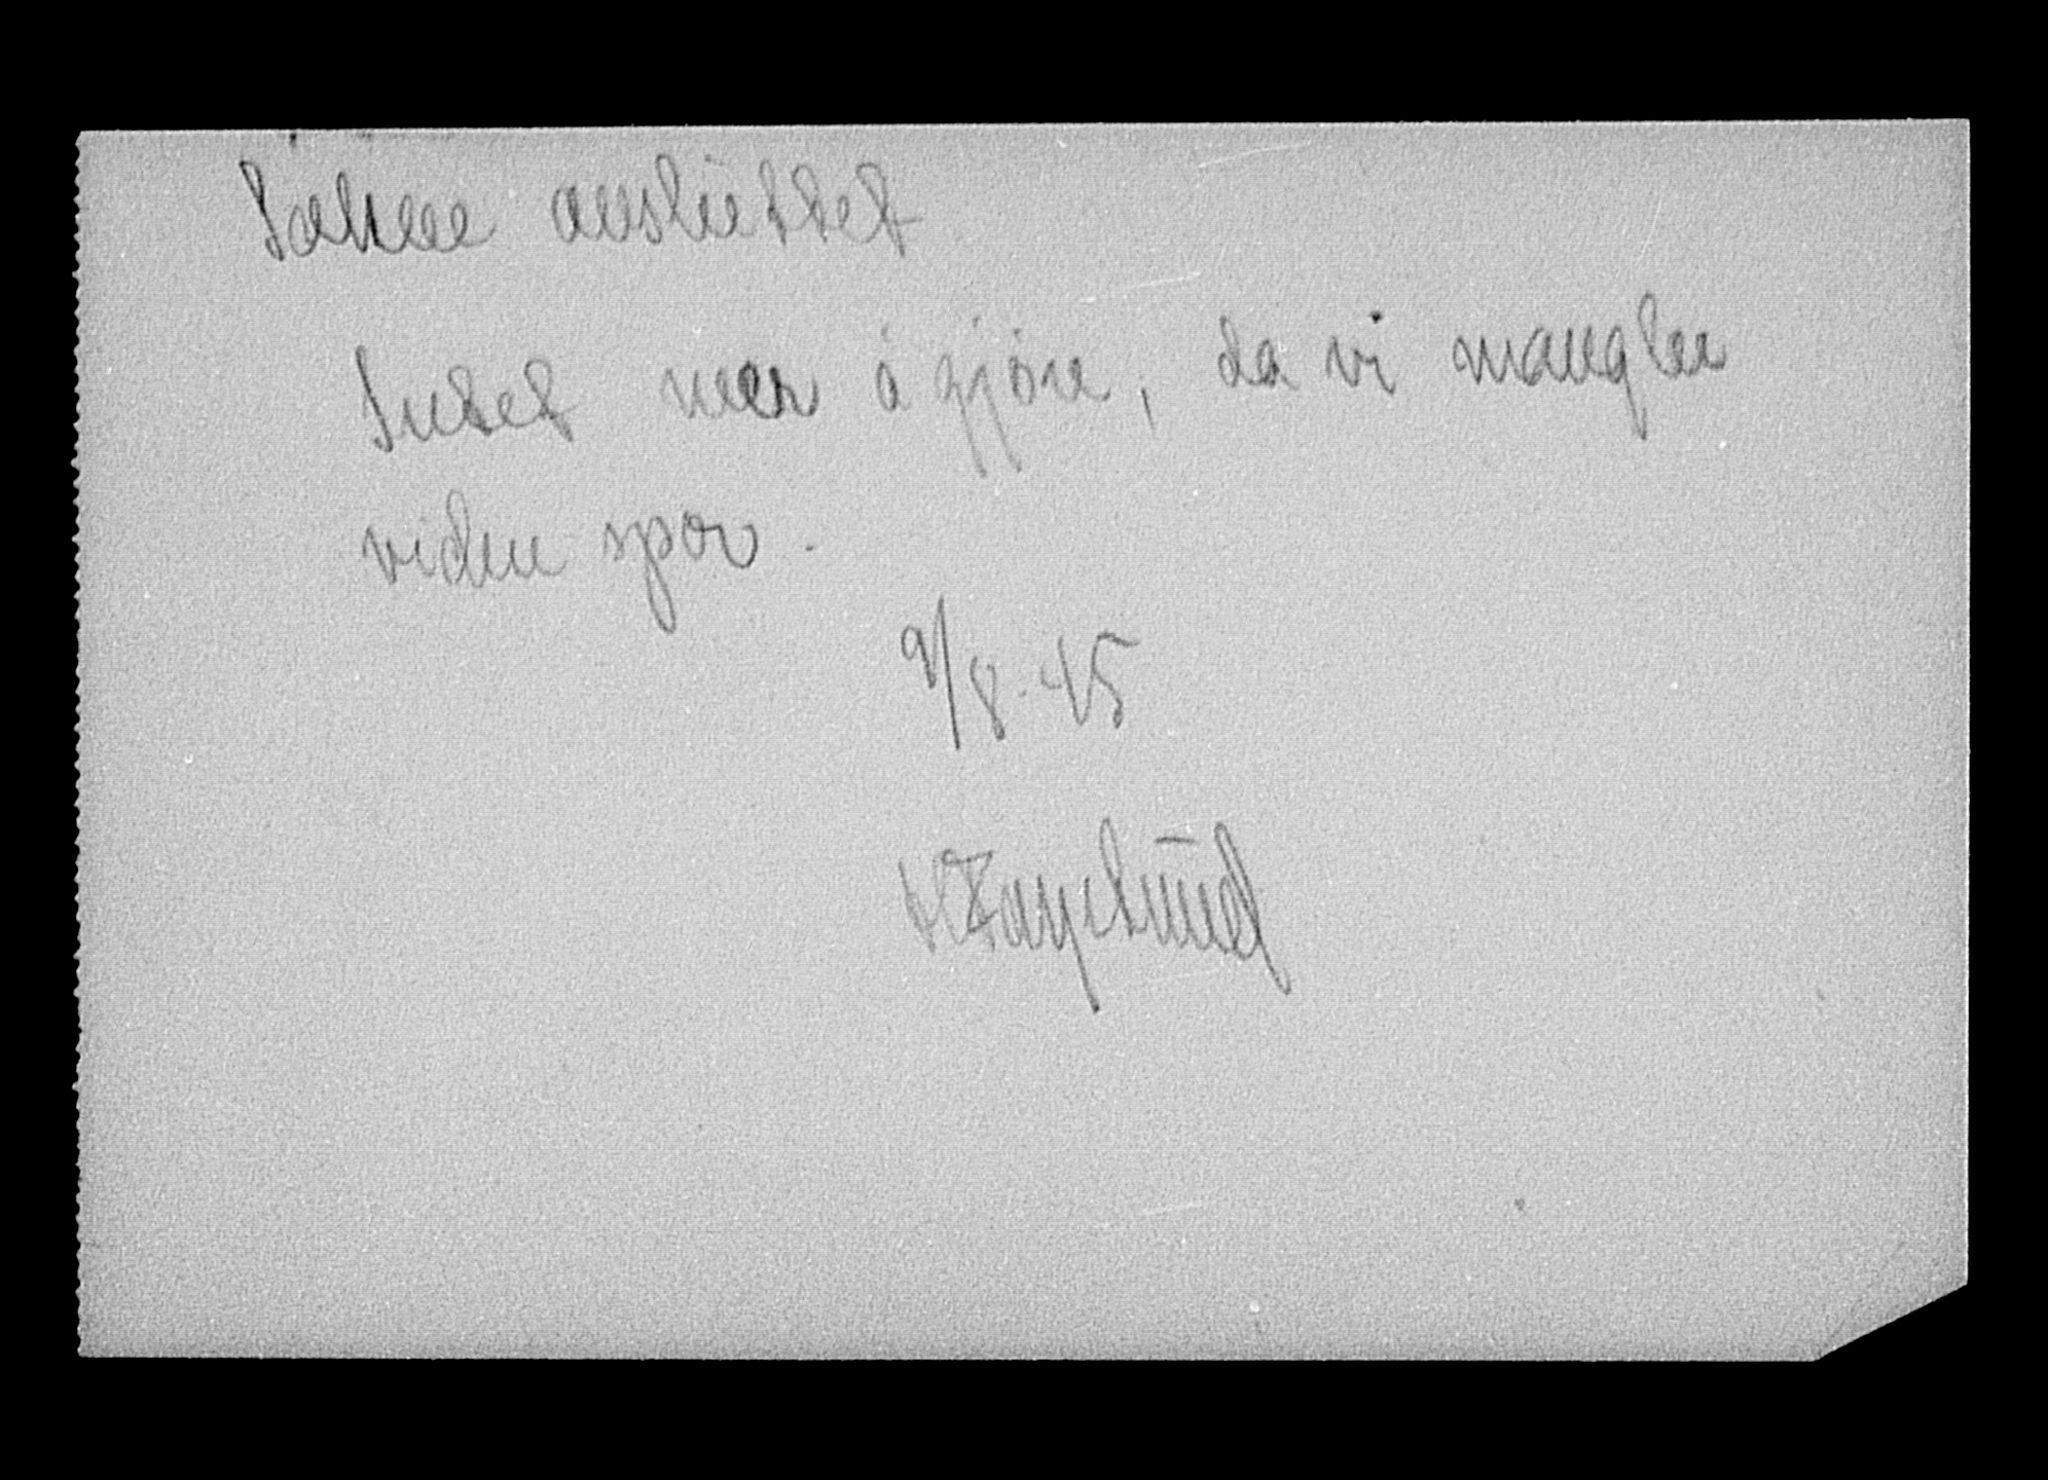 Saken avsluttet
Intet mer å gjøre, da vi mangler
viden spor.
9/8-45